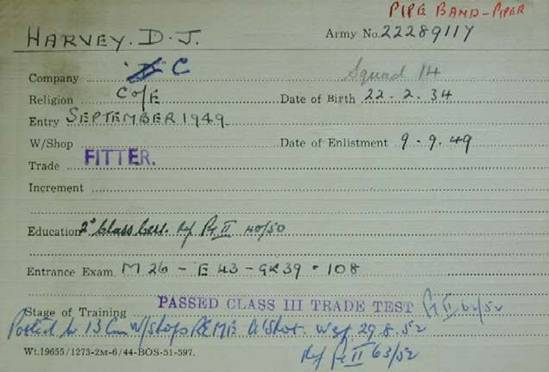 PIPE BAND - PIPER
HARVEY. D. J. Army No. 22289117
Company C Squad 14
Religion C of E Date of Birth 22. 2. 34
Entry SEPTEMBER 1949.
W/Shop Date of Enlistment 9. 9. 49
Trade FITTER.
Increment
Education 2° Class Cert. Ref Pt II 40/50
Entrance Exam. M 26 - E 43 - GK 39 - 108
Stage of Training PASSED CLASS III TRADE TEST Pt II 62/52
Posted to 13 Cmn W/Shops REME A'Shot. Wef 29.8.52
Ref Pt II 63/52
Wt.19655/1273-2M-6/44-BOS-51-597.